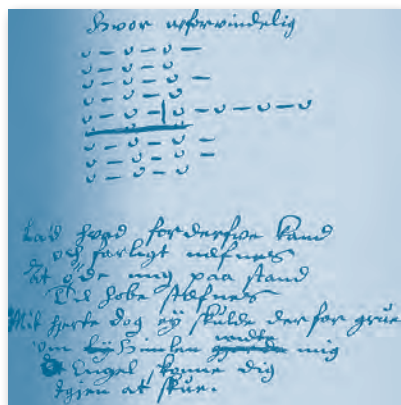 Hvor uforvindelig
Lad hvad forderfve kand
og farligt nefnes
At øde mig paa stand
Til hobe stefnes
Mit herte dog ey skulde der for grue
om himlen mig
Engel skønne dig
igien at skue.